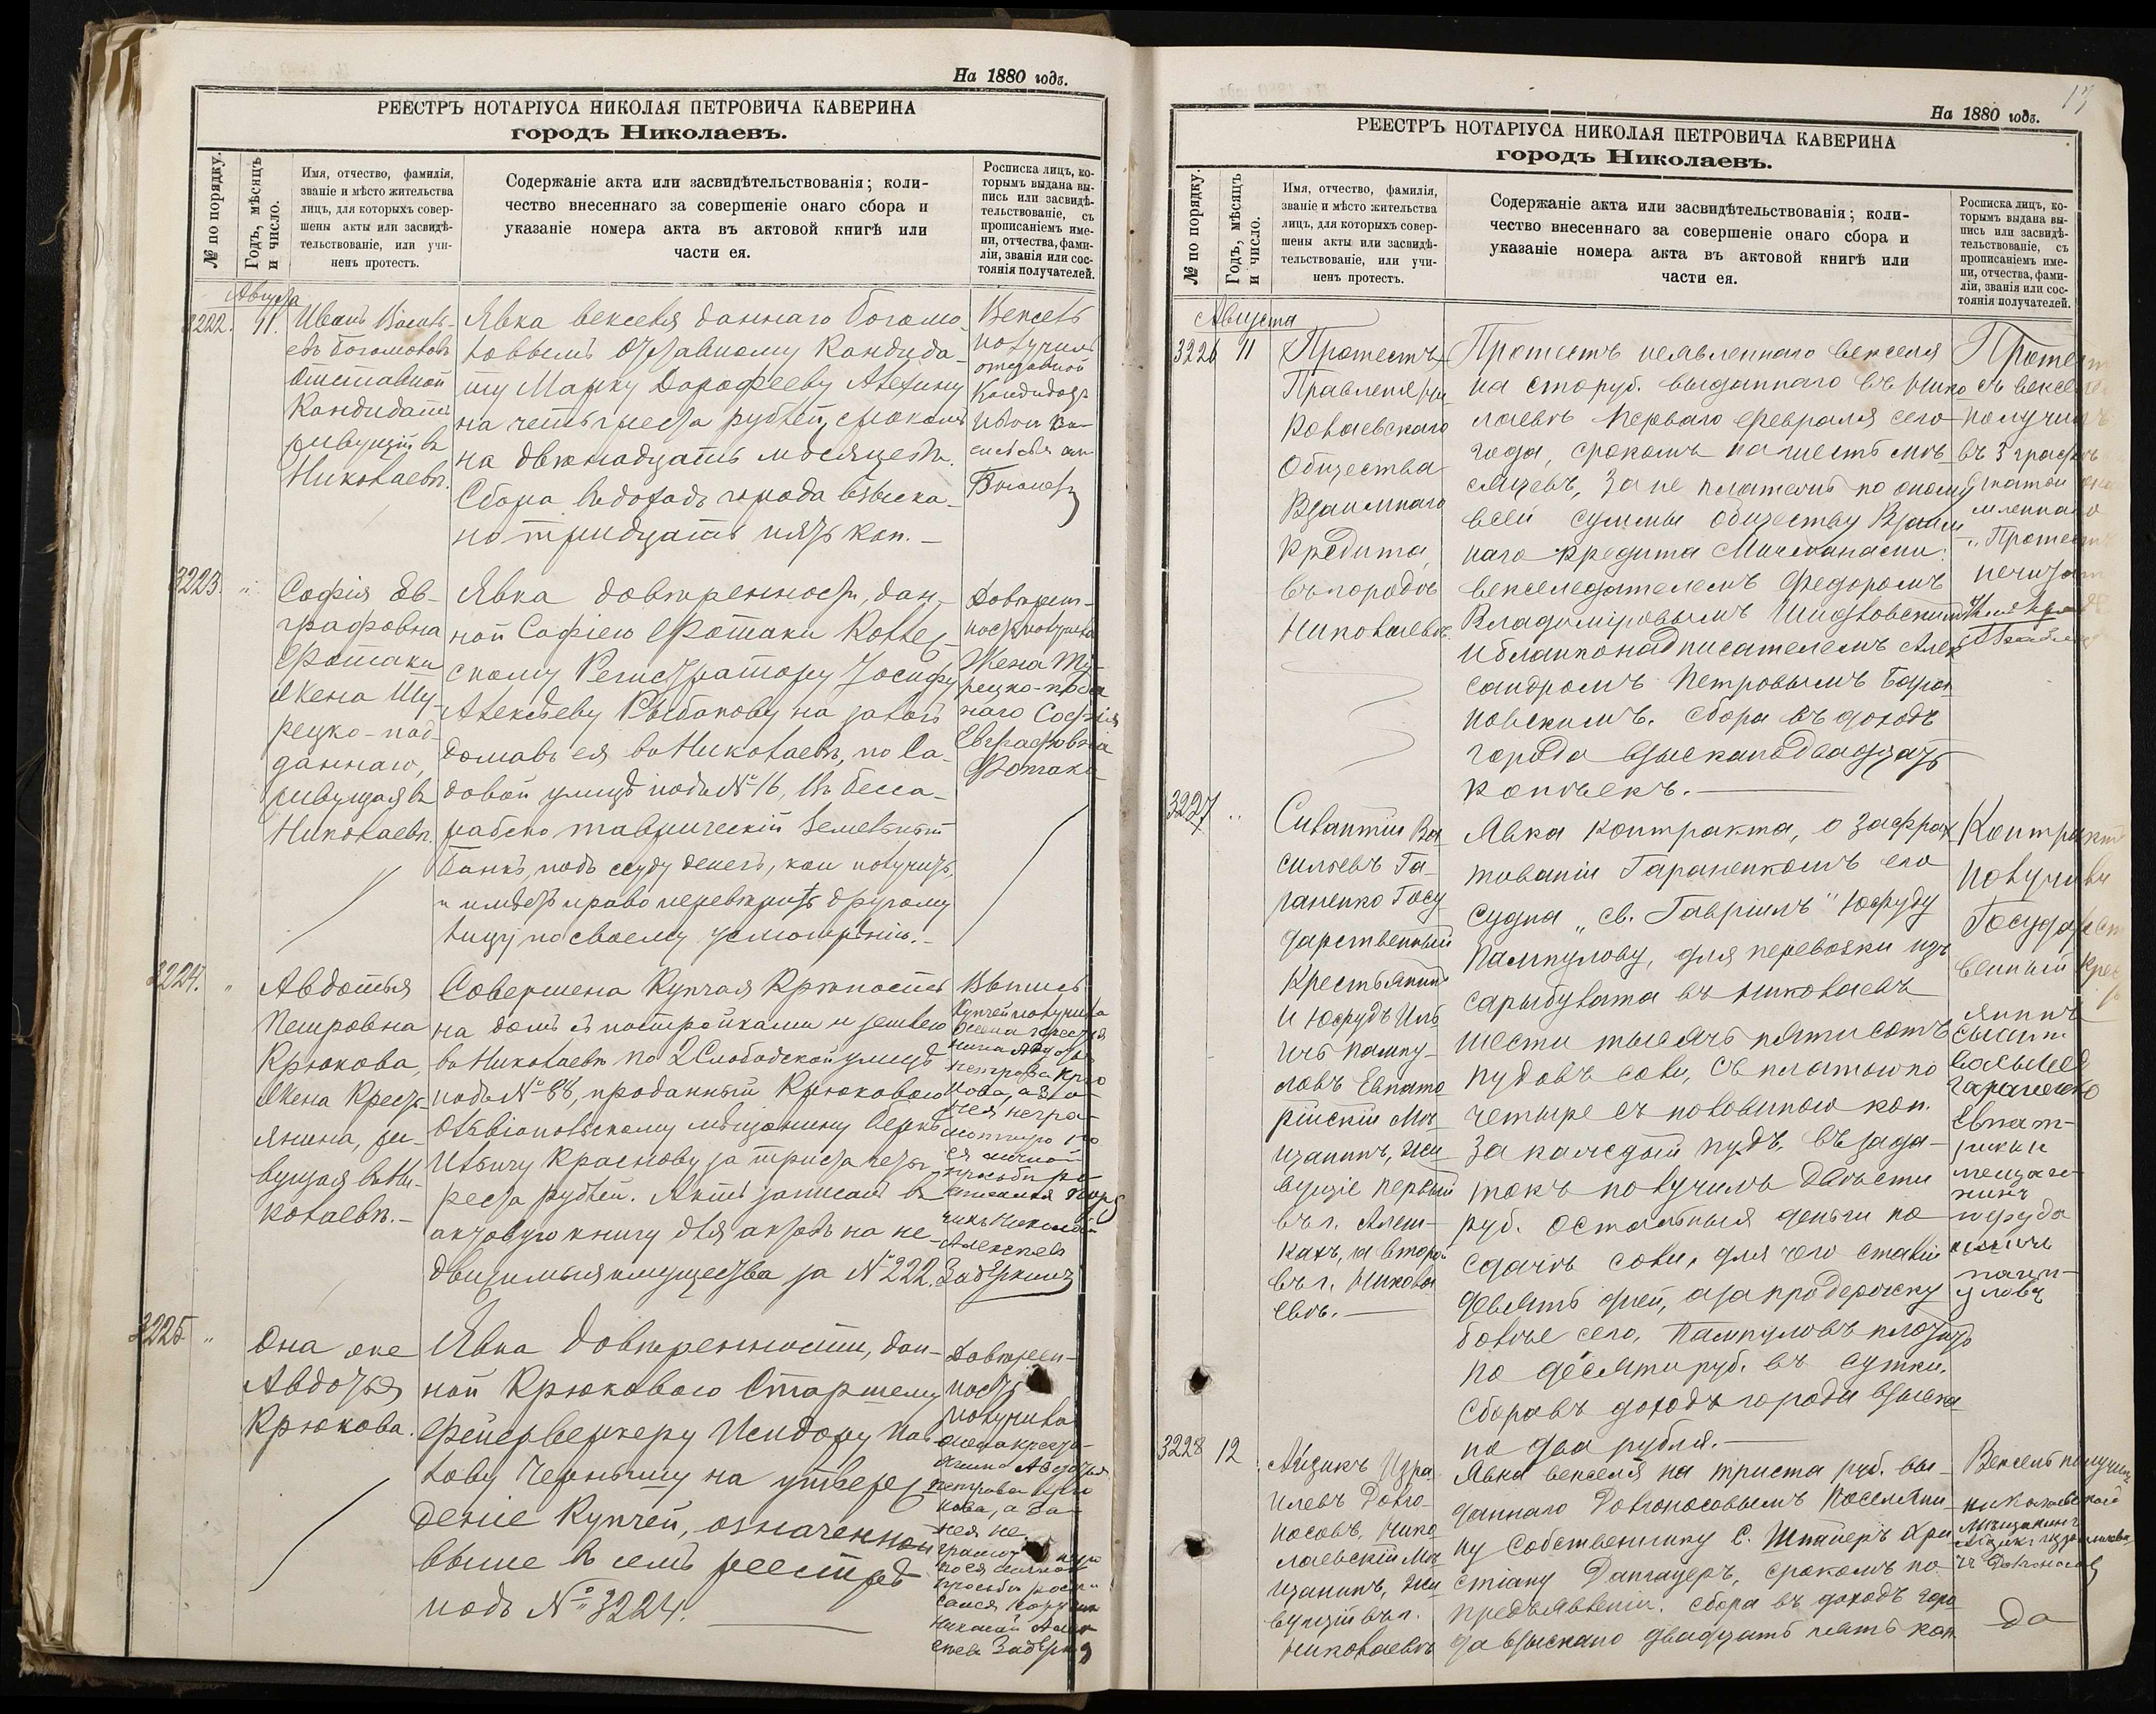 На 1880 годъ.
РЕЕСТРЪ НОТАРІУСА НИКОЛАЯ ПЕТРОВИЧА КАВЕРИНА
городъ Николаевъ.
№ по порядку.
Годъ, мѣсяцъ
и число.
Имя, отчество, фамилія,
званіе и мѣсто жительства
лицъ, для которыхъ совер-
шены акты или засвидѣ-
тельствованіе, или учи-
ненъ протестъ.
Содержаніе акта или засвидѣтельствованія; коли-
чество внесеннаго за совершеніе онаго сбора и
указаніе номера акта въ актовой книгѣ или
части ея.
Росписка лицъ, ко-
торымъ выдана вы-
пись или засвидѣ-
тельствованіе, съ
прописаніемъ име-
ни, отчества, фами-
ліи, званія или сос-
тоянія получателей.
Августа
3222. 11.
Иванъ Василь-
евъ Богомоловъ
Отставной
Кандидатъ
живущій въ
Николаевѣ.
Явка векселя даннаго Богомо-
ловымъ Отставному Кандида-
ту Марку Дорофееву Алехину
на четыреста рублей, срокомъ
на двѣнадцать мѣсяцевъ.
Сбора въ доходъ города взыска-
но тридцать пять коп. —
Вексель
получилъ
отставной
Кандидатъ
Иванъ Ва-
3223. "
Софія Ев-
графовна
Фотаки
Жена Ту-
рецко-под-
даннаго,
живущая въ
Николаевѣ.
Явка довѣренности, дан-
ной Софіею Фотаки Коллеж-
скому Регистратору Іосифу
Алексѣеву Рыбакову на залогъ
дома въ ея въ Николаевѣ, по Са-
довой улицѣ подъ № 16, въ Бесса-
рабско таврическій Земельный
Банкъ, подъ ссуду денегъ, кои получитъ,
и имѣетъ право перевѣрить другому
лицу по своему усмотрѣнію. —
Довѣрен-
ность получила
Жена Ту-
рецко-подда
наго Софія
Евграфовна
Фотаки
3224. "
Авдотья
Петровна
Крюкова,
Жена Кресть-
янина, жи-
вущая въ Ни-
колаевѣ. —
Совершена Купчая Крѣпость
на домъ съ постройками и землею
въ Николаевѣ по 2 Слободской улицѣ
подъ № 88, проданный Крюковою
Ольвіопольскому мѣщанину Берко
Ильичу Краснову за триста четы-
реста рублей. Актъ записанъ въ
актовую книгу для актовъ на не-
движимыя имущества за № 222.
Выпись
Купчей получила
Жена крестья
нина Авдотья
Петрова Крю
кова, а за
нея негра-
мотную по
ея личной
просьбѣ ро
списался Пору
чикъ Николай
Алексѣевъ
Задеркинъ
3225. "
Она же
Авдотья
Крюкова.
Явка довѣренности, дан-
ной Крюковою Старшему
Фейерверкеру Исидору Пав-
лову Чернышу на утверж-
деніе Купчей, означенной
выше въ семъ реестрѣ
подъ № 3224.
Довѣрен-
ность
получила
жена кресть-
янина Авдотья
Петрова Крю
кова, а за
нея не
грамотную
по ея личной
просьбѣ роспи
сался Поручикъ
Николай Алек
сѣевъ Задеркин
13
На 1880 годъ.
РЕЕСТРЪ НОТАРІУСА НИКОЛАЯ ПЕТРОВИЧА КАВЕРИНА
городъ Николаевъ.
№ по порядку.
Годъ, мѣсяцъ
и число.
Имя, отчество, фамилія,
званіе и мѣсто жительства
лицъ, для которыхъ совер-
шены акты или засвидѣ-
тельствованіе, или учи-
ненъ протестъ.
Содержаніе акта или засвидѣтельствованія; коли-
чество внесеннаго за совершеніе онаго сбора и
указаніе номера акта въ актовой книгѣ или
части ея.
Росписка лицъ, ко-
торымъ выдана вы-
пись или засвидѣ-
тельствованіе, съ
прописаніемъ име-
ни, отчества, фами-
ліи, званія или сос-
тоянія получателей.
Августа
3226 11
Протестъ
Правленія Ни
колаевскаго
Общества
Взаимнаго
Кредита,
въ городѣ
Николаевѣ.
Протестъ неявленнаго векселя
на сто руб. выданнаго въ Нико
лаевѣ перваго Февраля сего
года, срокомъ на шесть мѣ-
сяцевъ, за не платежъ по оному
всей суммы Обществу Взаим
наго Кредита
векселедателемъ Федоромъ
Владиміровымъ
и бланконадписателемъ Алек
сандромъ Петровымъ Баран
новскимъ. Сбора въ доходъ
города взыскано двадцать
копѣекъ. —
Протестъ
съ векселемъ
получилъ
въ 3 графѣ
3227 "
Силантій Ва
сильевъ Га-
раненко Госу
дарственный
Крестьянинъ
и Юфудъ Иль
ичъ Пампу-
ловъ Евпато
рійскій Мѣ
щанинъ, жи
вущіе первый
въ г. Алеш-
кахъ, а второй
въ г. Никола
евѣ. —
Явка контракта, о зафрах
тованіи Гараненкомъ его
судна „св. Гавріилъ" Юфуду
Пампулову, для перевозки изъ
Сарыбулата въ Николаевъ
шести тысячъ пятисотъ
пудовъ соли, съ платою по
четыре съ половиною коп.
за каждый пудъ, въ зада-
токъ получилъ двѣсти
руб. остальныя деньги по
сдачѣ соли, для чего ставій
девять дней, а за продержку
болѣе сего, Пампуловъ платитъ
по десяти руб. въ сутки.
Сбора въ доходъ города взыска
но два рубля. —
Контрактъ
получили
Государст
венный Крес
янинъ
Гараненко
Евпат-
Памп-
уловъ
3228 12
Айзикъ Изра
илевъ Долго-
носовъ, Нико
лаевскій Мѣ
щанинъ, жи
вущій въ г.
Николаевѣ
Явка векселя на триста руб. вы-
даннаго Долгоносовымъ Поселяни
ну Собственнику С. Шпайеръ Хри
стіану Дангауеръ, срокомъ по
предъявленіи. Сбора въ доходъ горо
да взыскано двадцать пять коп.
Вексель получилъ
николаевской
Мѣщанинъ
Айзикъ Израилевъ
Долгоносов